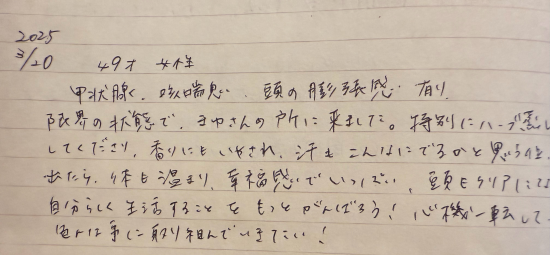 2025
3/20 49才 女性
甲状腺、咳喘息、頭の膨張感 有り
限界の状態で、さんの所に来ました。特別にハーブ蒸し
してくださり、香りにもいやされ、汗もこんなにでるかと思う位
出たら、体も温まり、幸福感でいっぱい、頭もクリアになり
自分らしく生活することをもっとがんばろう！心機一転して、
に取り組んでいきたい！